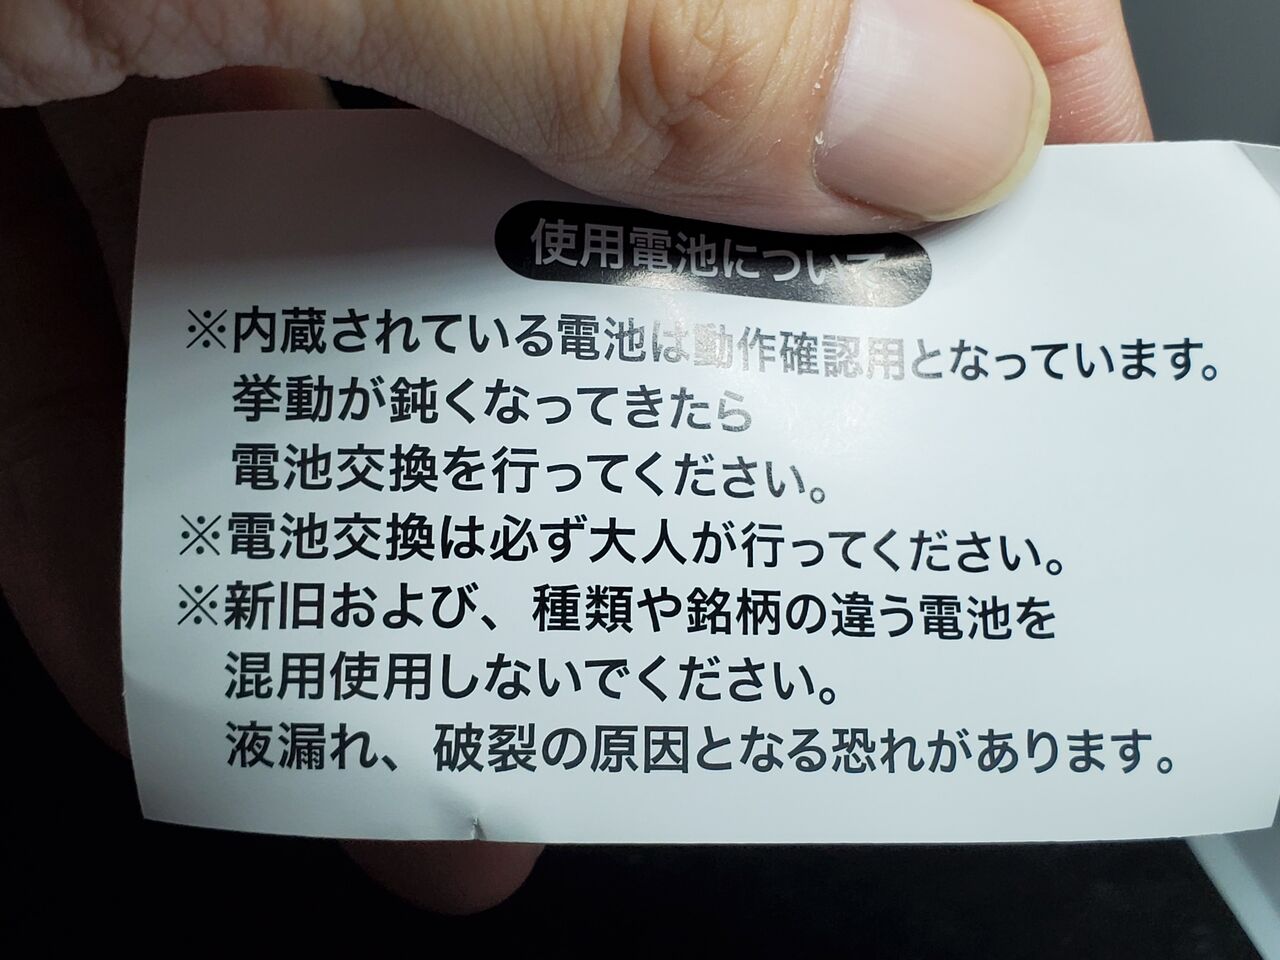 使用電池について
※内蔵されている電池は動作確認用となっています。
挙動が鈍くなってきたら
電池交換を行ってください。
※電池交換は必ず大人が行ってください。
※新旧および、種類や銘柄の違う電池を
混用使用しないでください。
液漏れ、破裂の原因となる恐れがあります。